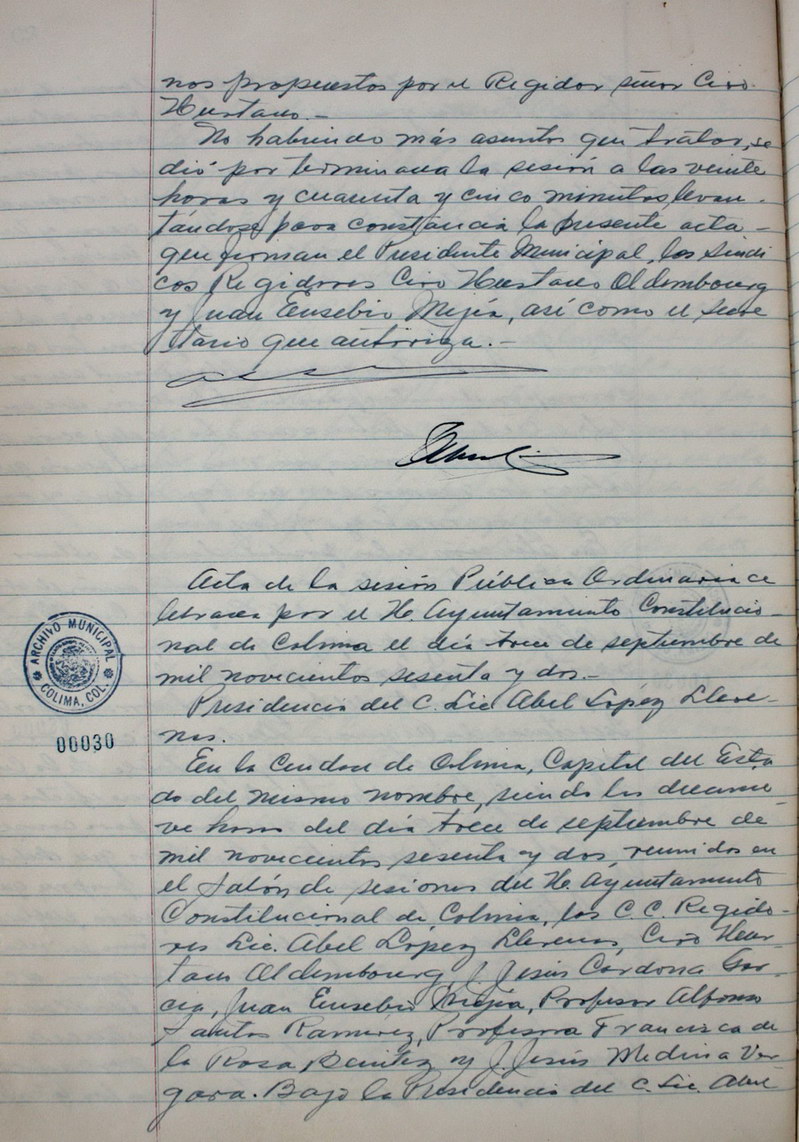 nos propuestos por el Regidor señor Ciro
Hurtado.-
No habiendo más asuntos que tratar, se
dió por terminada la sesión a las veinte
horas y cuarenta y cinco minutos, levan-
tándose para constancia la presente acta
que firman el Presidente Municipal, los Sindi
cos Regidores Ciro Hurtado Oldembourg
y Juan Eusebio Mejía, así como el secre
tario que autoriza.-
Acta de la sesión Pública Ordinaria ce
lebrada por el H. Ayuntamiento Constitucio-
nal de Colima el día trece de septiembre de
mil novecientos sesenta y dos.-
Presidencia del C. Lic Abel López Llere-
nas.
En la Ciudad de Colima, Capital del Esta
do del mismo nombre, siendo las diecinue
ve horas del día trece de septiembre de
mil novecientos sesenta y dos, reunidos en
el Salón de sesiones del H. Ayuntamiento
Constitucional de Colima, los C.C. Regido-
res Lic. Abel López Llerenas, Ciro Hur-
tado Oldembourg, J. Jesús Cardona Gar-
cía, Juan Eusebio Mejía, Profesor Alfonso
Santos Ramírez, Profesora Francisca de
la Rosa Benítez y J. Jesús Medina Ver
gara. Bajo la Presidencia del C. Lic. Abel
ARCHIVO MUNICIPAL
COLIMA, COL.
00030